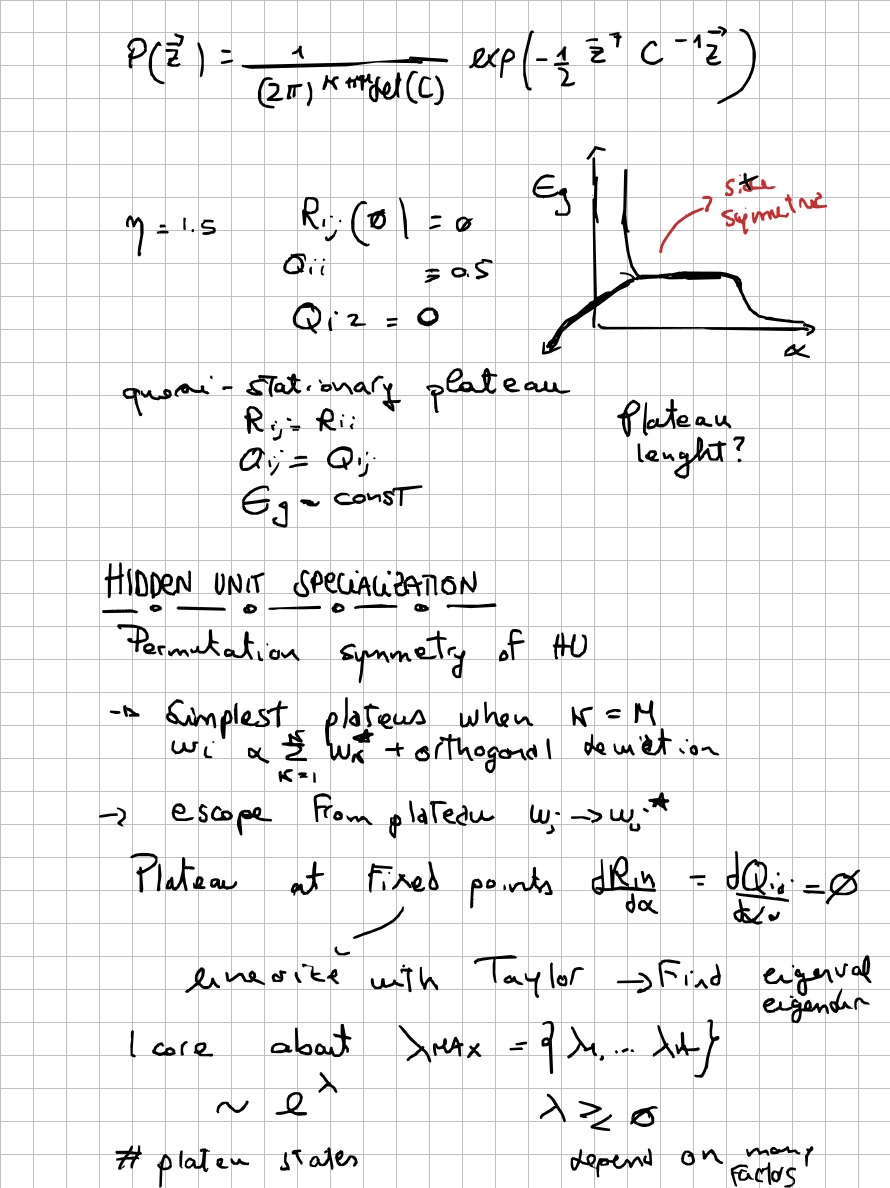 P(z⃗) = 1 / (2π)^(K+M) det(C) exp(-1/2 z⃗^T C^-1 z⃗)
η = 1.5
R_ij(∅) = ∅
Q_ii = 0.5
Q_i2 = 0
Eg
site
symmetric
α
quasi-stationary plateau
R_ij = R_ii
Q_ij = Q_ij
Eg ~ const
Plateau
lenght?
HIDDEN UNIT SPECIALIZATION
Permutation symmetry of HU
→ Simplest plateus when K = M
w_i ∝ Σ_{K=1}^{K} w_K^* + orthogonal deviation
→ escape from plateau w_i → w_i^*
Plateau at fixed points dR_in/dα = dQ_ij/dα = ∅
linearize with Taylor → Find eigenval
I care about λ_MAX = {λ_1, ... λ_M}
~ e^λ
λ ≷ ∅
# plateu states
depend on many
factors